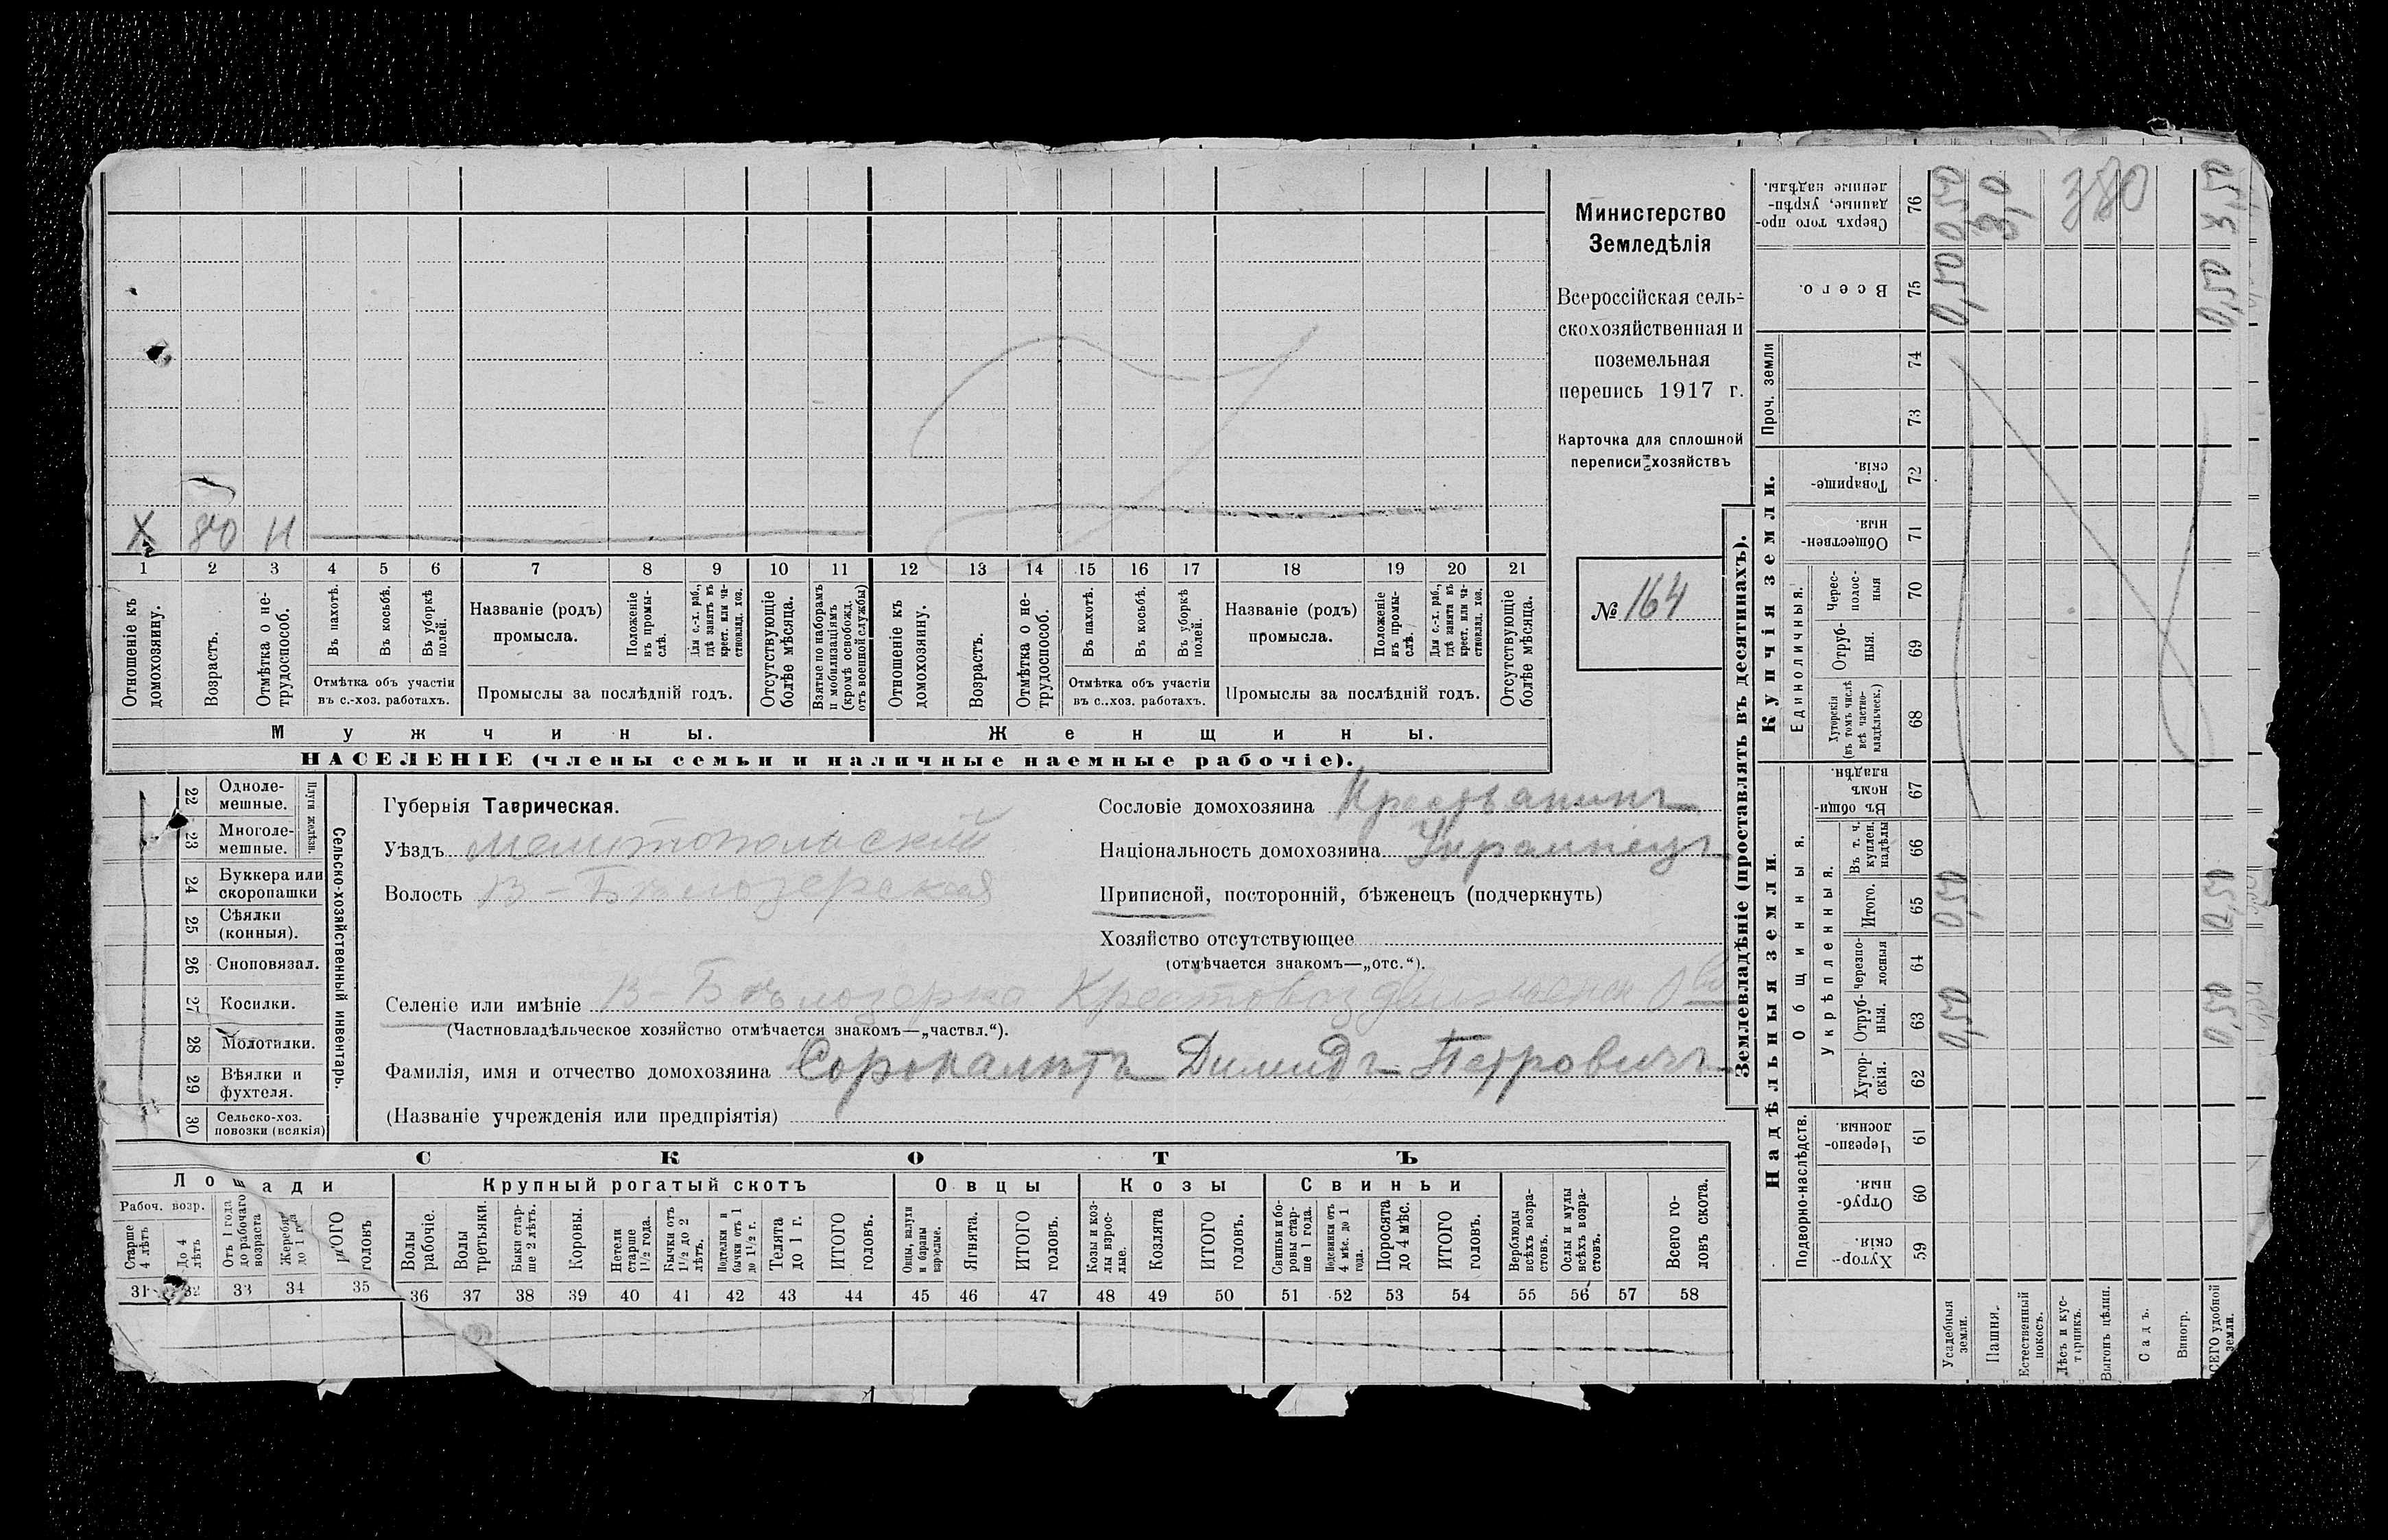 Министерство
Земледѣлія
Всероссійская сель-
скохозяйственная и
поземельная
перепись 1917 г.
Карточка для сплошной
переписи хозяйствъ
№ 164
Х 80 Н
1 2 3 4 5 6 7 8 9 10 11 12 13 14 15 16 17 18 19 20 21
Отношеніе къ домохозяину.
Возрастъ.
Отмѣтка о не-трудоспособ.
Въ пахотѣ.
Въ косьбѣ.
Въ уборкѣ полей.
Отмѣтка объ участіи
въ с.-хоз. работахъ.
Названіе (родъ)
промысла.
Положеніе въ промы-слѣ.
Для с.-х. раб., гдѣ занятъ въ крест. или ча-стновлад. хоз.
Промыслы за послѣдній годъ.
Отсутствующіе болѣе мѣсяца.
Взятые по наборамъ и мобилизаціямъ (кромѣ освобожд. отъ военной службы)
Отношеніе къ домохозяину.
Возрастъ.
Отмѣтка о не-трудоспособ.
Въ пахотѣ.
Въ косьбѣ.
Въ уборкѣ полей.
Отмѣтка объ участіи
въ с.-хоз. работахъ.
Названіе (родъ)
промысла.
Положеніе въ промы-слѣ.
Для с.-х. раб., гдѣ занята въ крест. или ча-стновлад. хоз.
Промыслы за послѣдній годъ.
Отсутствующіе болѣе мѣсяца.
Мужчины.
Женщины.
НАСЕЛЕНІЕ (члены семьи и наличные наемные рабочіе).
22 Одноле-мешные.
23 Многоле-мешные.
Плуги желѣзн.
24 Буккера или скоропашки
25 Сѣялки (конныя).
26 Сноповязал.
27 Косилки.
28 Молотилки.
29 Вѣялки и фухтеля.
30 Сельско-хоз. повозки (всякія)
Сельско-хозяйственный инвентарь.
Губернія Таврическая.
Уѣздъ Мелитопольскій
Волость В-Бѣлозерская
Сословіе домохозяина Крестьянинъ
Національность домохозяина Украинецъ
Приписной, посторонній, бѣженецъ (подчеркнуть)
Хозяйство отсутствующее
(отмѣчается знакомъ—„отс.“).
Селеніе или имѣніе В-Бѣлозерка
(Частновладѣльческое хозяйство отмѣчается знакомъ—„частвл.“).
Фамилія, имя и отчество домохозяина Сорокалѣтъ Димидъ Петровичъ
(Названіе учрежденія или предпріятія)
СКОТЪ
Лошади
Рабоч. возр.
Старше 4 лѣтъ
До 4 лѣтъ
Отъ 1 года до рабочаго возраста
Жеребя до 1 года
ИТОГО головъ
Крупный рогатый скотъ
Волы рабочіе.
Волы третьяки.
Быки стар-ше 2 лѣтъ.
Коровы.
Нетели старше 1½ года.
Бычки отъ 1½ до 2 лѣтъ.
Подтелки и бычки отъ 1 до 1½ г.
Телята до 1 г.
ИТОГО головъ.
Овцы
Овцы, валухи и бараны взрослые.
Ягнята.
ИТОГО головъ.
Козы
Козы и коз-лы взрос-лые.
Козлята
ИТОГО головъ.
Свиньи
Свиньи и бо-ровы стар-ше 1 года.
Подсвинки отъ 4 мѣс. до 1 года.
Поросята до 4 мѣс.
ИТОГО головъ.
Верблюды всѣхъ возра-стовъ.
Ослы и мулы всѣхъ возра-стовъ.
Всего го-ловъ скота.
31 32 33 34 35 36 37 38 39 40 41 42 43 44 45 46 47 48 49 50 51 52 53 54 55 56 57 58
Землевладѣніе (проставлять въ десятинахъ).
Надѣльныя земли.
Подворно-наслѣдств.
Хутор-скія. 59
Отруб-ныя. 60
Черезпо-лосныя. 61
Общинныя.
Укрѣпленныя.
Хутор-скія. 62
Отруб-ныя. 63
Черезпо-лосныя 64
Итого. 65
Въ т. ч. куплен. надѣлы 66
Въ общин-номъ владѣн. 67
Купчія земли.
Единоличныя.
Хуторскія (въ томъ числѣ всѣ частно-владѣльческ.) 68
Отруб-ныя. 69
Черес-полос-ныя 70
Обществен-ныя. 71
Товарище-скія. 72
Проч. земли
73
74
Всего. 75
Сверхъ того про-данные, укрѣп-ленные надѣлы. 76
Усадебныя земли. 0,50 0,50 0,50 0,50
Пашня. 3,0
Естественный покосъ.
Лѣсъ и кус-тарникъ.
Выгонъ цѣлин.
Садъ.
Виногр.
СЕГО удобной земли. 0,50 0,50 0,50 3,50
380